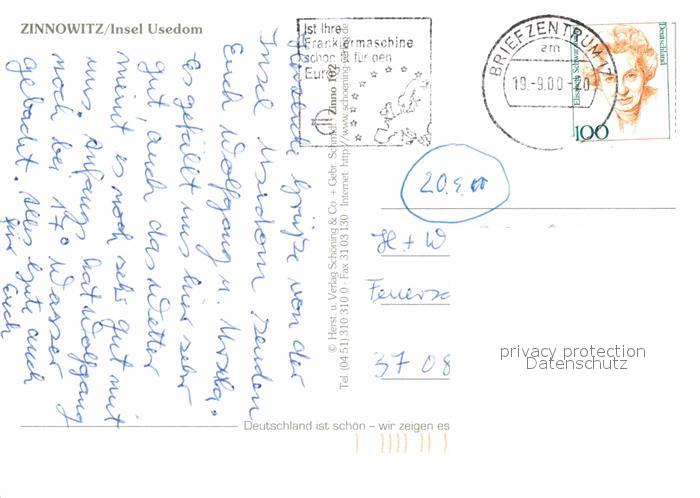 ZINNOWITZ/Insel Usedom
Ist Ihre
Frankiermaschine
schon fit für den
Euro?
BRIEFZENTRUM 17
am
19.-9.00-20
Deutschland
Elisabeth Schwarz
100
20.9.00
H + W
Feuersc
37 08
privacy protection
Datenschutz
Grüße von der
Insel Usedom senden
Euch Wolfgang u.
Es gefällt uns hier sehr
gut, auch das Wetter
meint es noch sehr gut mit
uns. Anfangs hat Wolfgang
noch bei 17° Wasser
gebadet. Alles Gute auch
für Euch
© Herst. u. Verlag Schöning & Co. + Gebr. Schmidt
Zinno 102
Tel. (04 51) 310 310 0 · Fax 31 03 130 · Internet: http://www.schoening-verlag.de
Deutschland ist schön – wir zeigen es